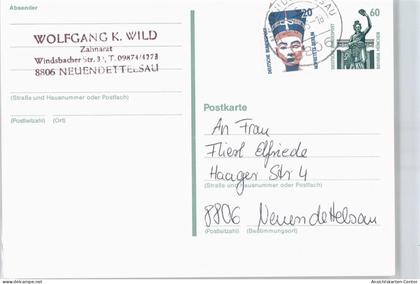 Absender
WOLFGANG K. WILD
Zahnarzt
Windsbacher Str. T. 09874/4273
8806 NEUENDETTELSAU
(Straße und Hausnummer oder Postfach)
(Postleitzahl) (Ort)
20
60
DEUTSCHE BUNDESPOST
NOFRETETE BERLIN
DEUTSCHE BUNDESPOST
BAVARIA MÜNCHEN
Postkarte
An Frau
Flierl Elfriede
Haager Str 4
(Straße und Hausnummer oder Postfach)
8806 Neuendettelsau
(Postleitzahl) (Bestimmungsort)
Ansichtskarten-Center